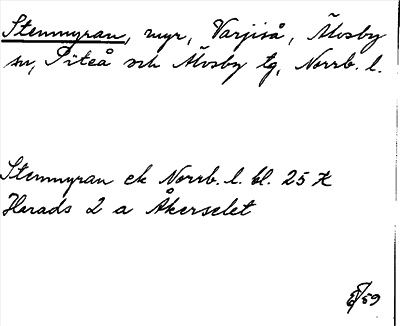 Stenmyran, myr, Varjiså, Älvsby
sn, Piteå och Älvsby tg, Norrb. l.
Stenmyran ek Norrb. l. bl. 25 t
Harads 2 a Åkerselet
59